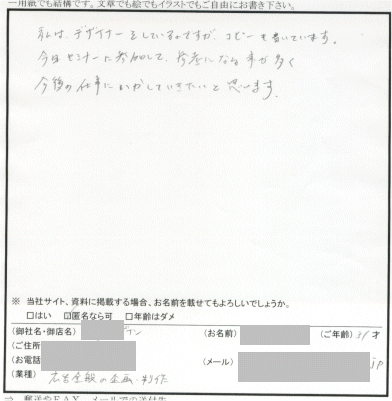 一用紙でも結構です。文章でも絵でもイラストでもご自由にお書き下さい。
私は、デザイナーをしているのですが、コピーも書いています。
今日セミナーに参加して、参考になる事が多く
今後の仕事にいかしていきたいと思います。
※ 当社サイト、資料に掲載する場合、お名前を載せてもよろしいでしょうか。
□はい ☑匿名なら可 □年齢はダメ
(御社名・御店名) イン (お名前) (ご年齢) 31才
(ご住所
(お電話 (メール) jp
(業種) 広告全般の企画・制作
⇒ 郵送やFAX、メールでの送付先